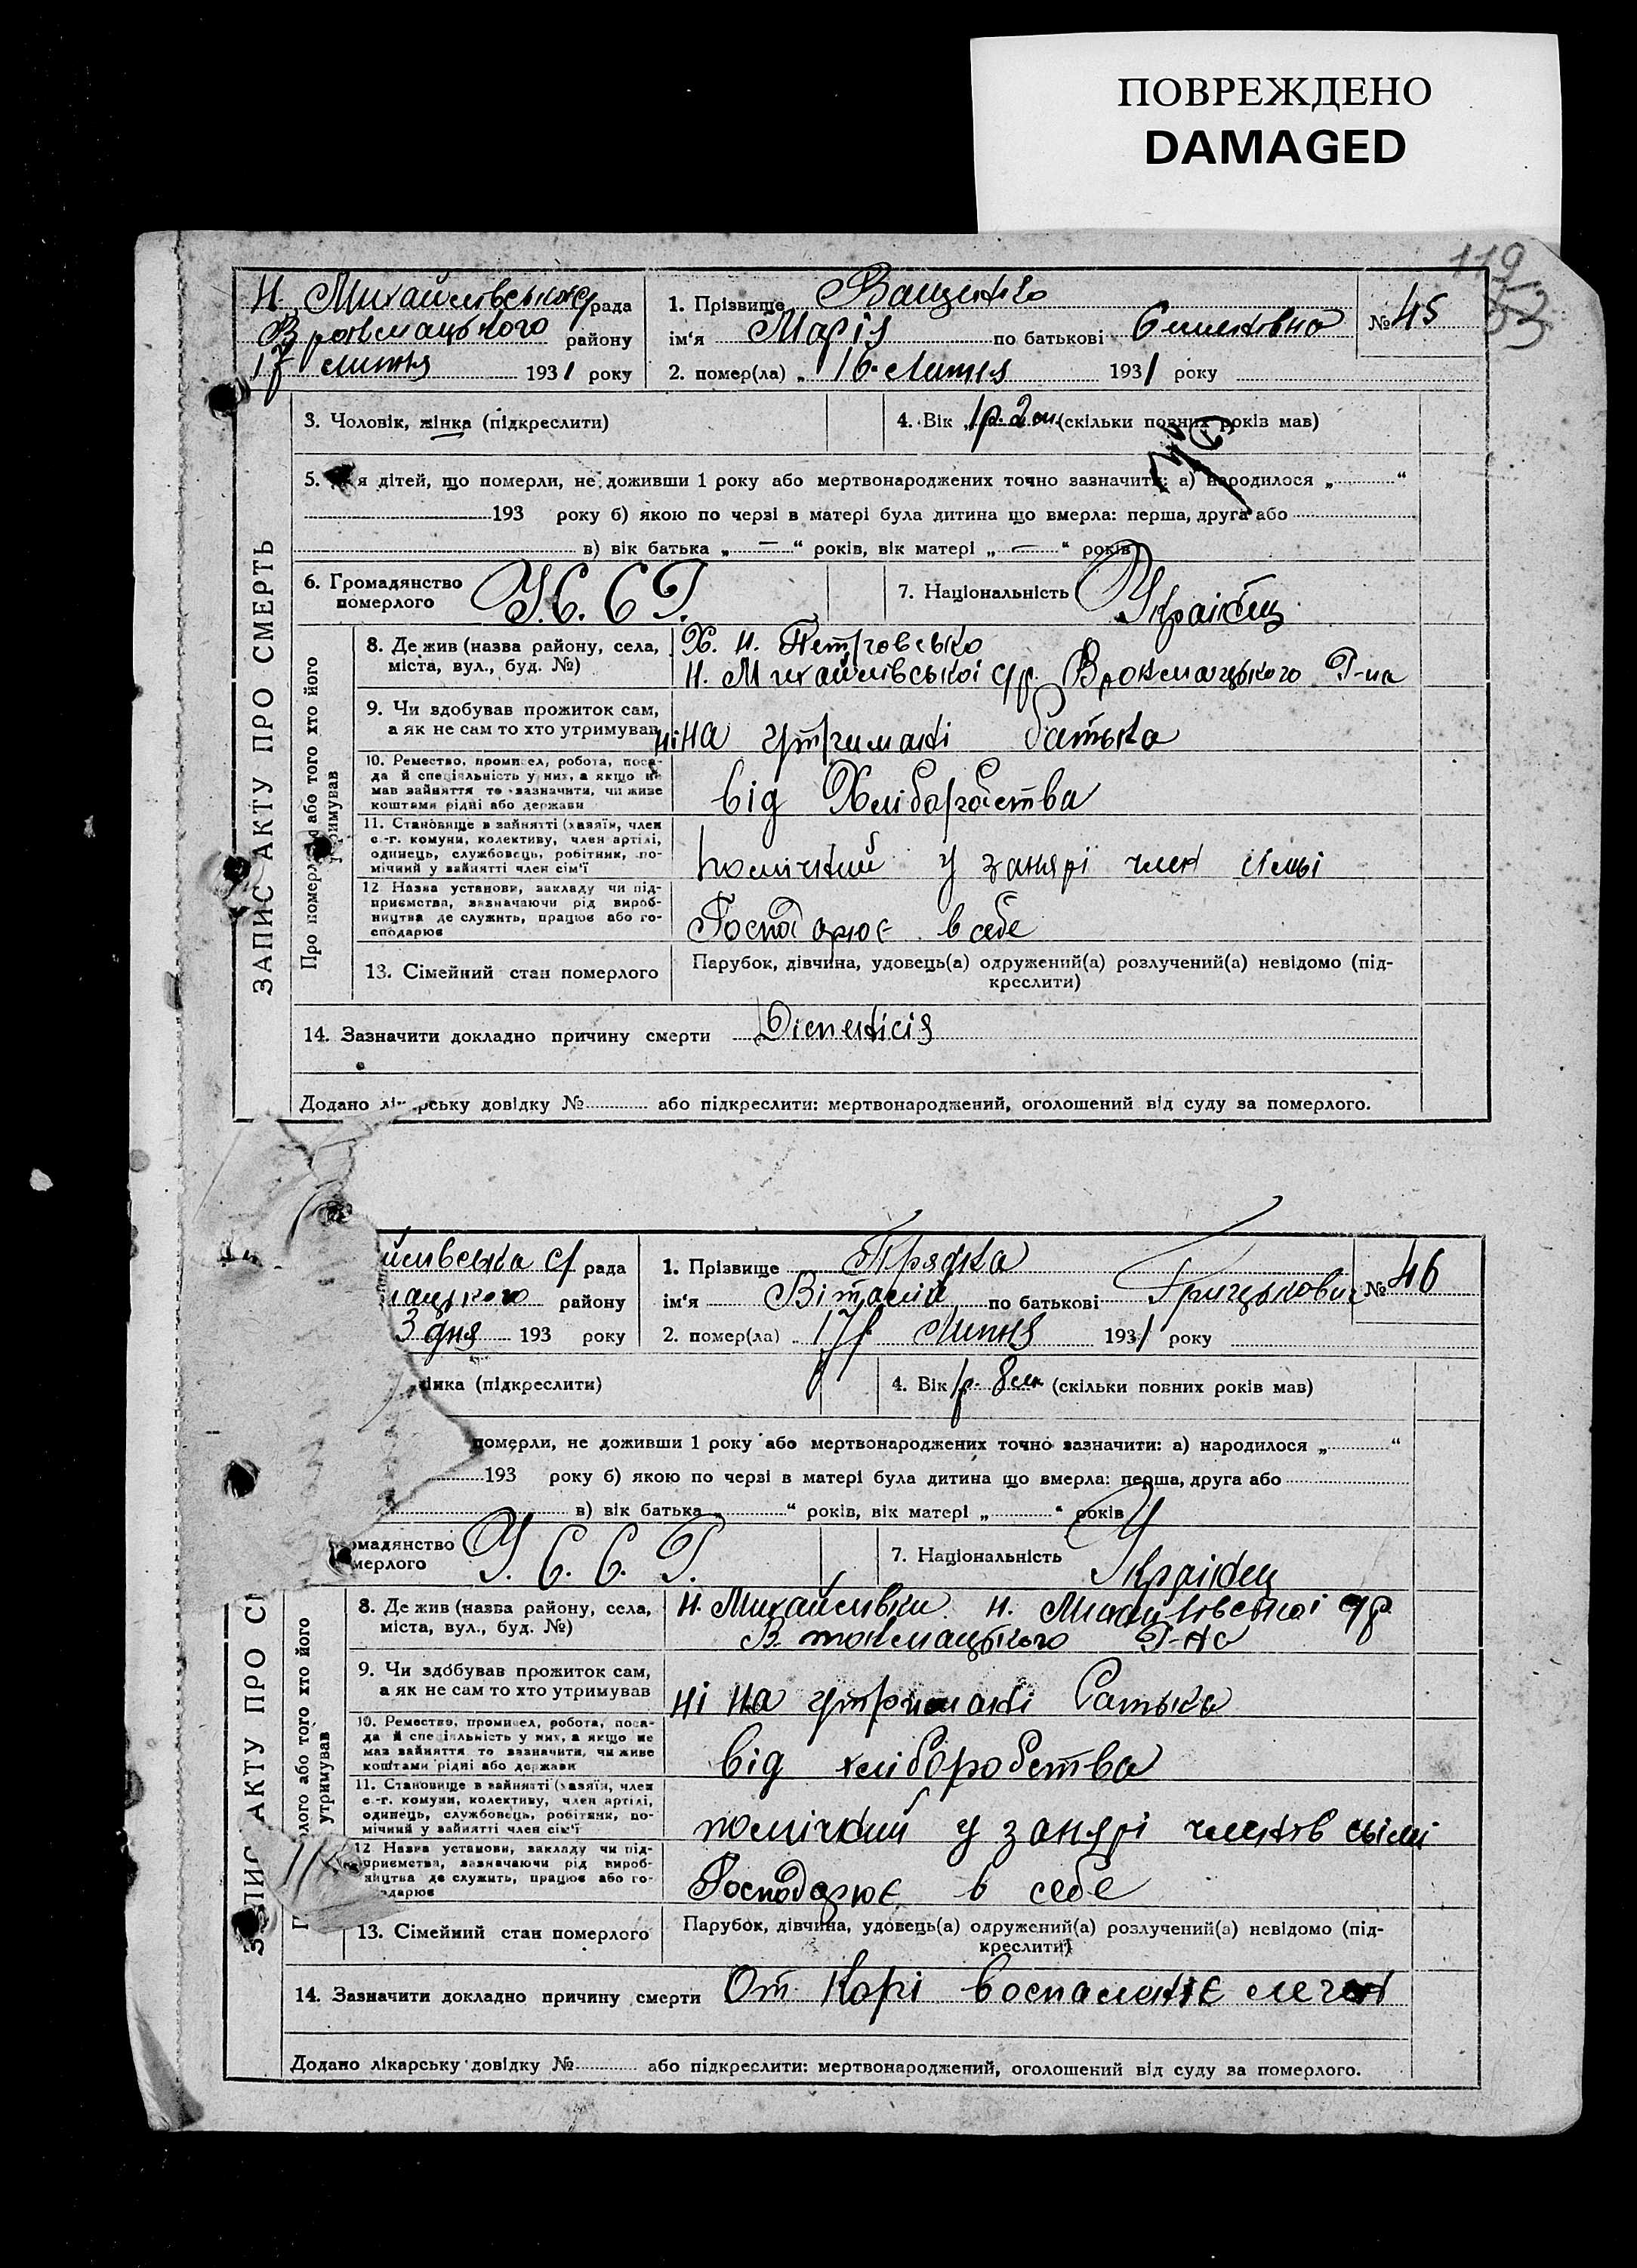 ПОВРЕЖДЕНО
DAMAGED
119
53
Н. Михайлівська с/рада
району
17 липня 1931 року
1. Прізвище Ващенко
ім'я Марія по батькові Семенівна
№ 45
2. помер(ла) „ 16 Липня 1931 року
3. Чоловік, жінка (підкреслити)
4. Вік 1р. 2 м. (скільки повних років мав)
5. я дітей, що померли, не доживши 1 року або мертвонароджених точно зазначити: а) народилося „ “
193 року б) якою по черзі в матері була дитина що вмерла: перша, друга або
в) вік батька „ — “ років, вік матері „ — “ років
6. Громадянство померлого У.С.С.Р.
7. Національність Українець
ЗАПИС АКТУ ПРО СМЕРТЬ
Про померлого або того хто його утримував
8. Де жив (назва району, села, міста, вул., буд. №)
Х. Н. Петровсько
Н. Михайлівської с/р. Р-на
9. Чи здобував прожиток сам, а як не сам то хто утримував
ні на утриманні батька
10. Ремество, промисел, робота, посада й спеціяльність у них, а якщо не мав зайняття то зазначити, чи живе коштами рідні або держави
від Хліборобства
11. Становище в зайнятті (хазяїн, член с.-г. комуни, колективу, член артілі, одинець, службовець, робітник, помічний у зайнятті член сім'ї
помічний у член сімьі
12 Назва установи, закладу чи підприємства, зазначаючи рід виробництва де служить, працює або господарює
Господарює в себе
13. Сімейний стан померлого
Парубок, дівчина, удовець(а) одружений(а) розлучений(а) невідомо (підкреслити)
14. Зазначити докладно причину смерти Діспенсія
Додано лікарську довідку № або підкреслити: мертвонароджений, оголошений від суду за померлого.
йлівська с/ рада
мацького району
3 дня 193 року
1. Прізвище Прядка
ім'я Віталій по батькові Грицькович
№ 46
2. помер(ла) „ 17 Липня 1931 року
інка (підкреслити)
4. Вік 1р. 8 м. (скільки повних років мав)
померли, не доживши 1 року або мертвонароджених точно зазначити: а) народилося „ “
193 року б) якою по черзі в матері була дитина що вмерла: перша, друга або
в) вік батька „ “ років, вік матері „ “ років
омадянство мерлого У.С.С.Р.
7. Національність Українець
АКТУ ПРО
лого або того хто його утримував
8. Де жив (назва району, села, міста, вул., буд. №)
Н. Михайлівки Н. Михайлівської с/р
В. токмацького Р-на
9. Чи здобував прожиток сам, а як не сам то хто утримував
ні на утриманні Батька
10. Ремество, промисел, робота, посада й спеціяльність у них, а якщо не мав зайняття то зазначити, чи живе коштами рідні або держави
від хліборобства
11. Становище в зайнятті (хазяїн, член с.-г. комуни, колективу, член артілі, одинець, службовець, робітник, помічний у зайнятті член сім'ї
помічний у членів сімьі
12 Назва установи, закладу чи підприємства, зазначаючи рід виробництва де служить, працює або господарює
Господарює в себе
13. Сімейний стан померлого
Парубок, дівчина, удовець(а) одружений(а) розлучений(а) невідомо (підкреслити)
14. Зазначити докладно причину смерти От Корі
Додано лікарську довідку № або підкреслити: мертвонароджений, оголошений від суду за померлого.